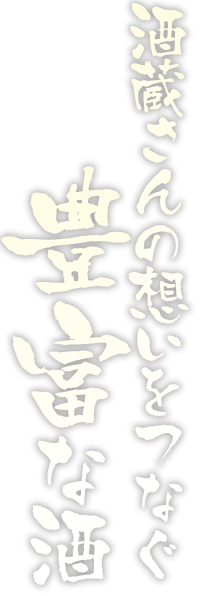 酒蔵さんの想いをつなぐ
豊富な酒